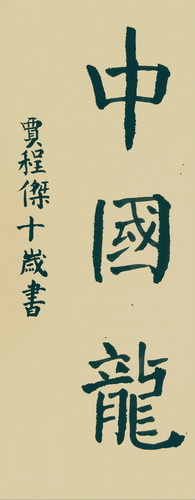 中國龍
賈程傑十歲書